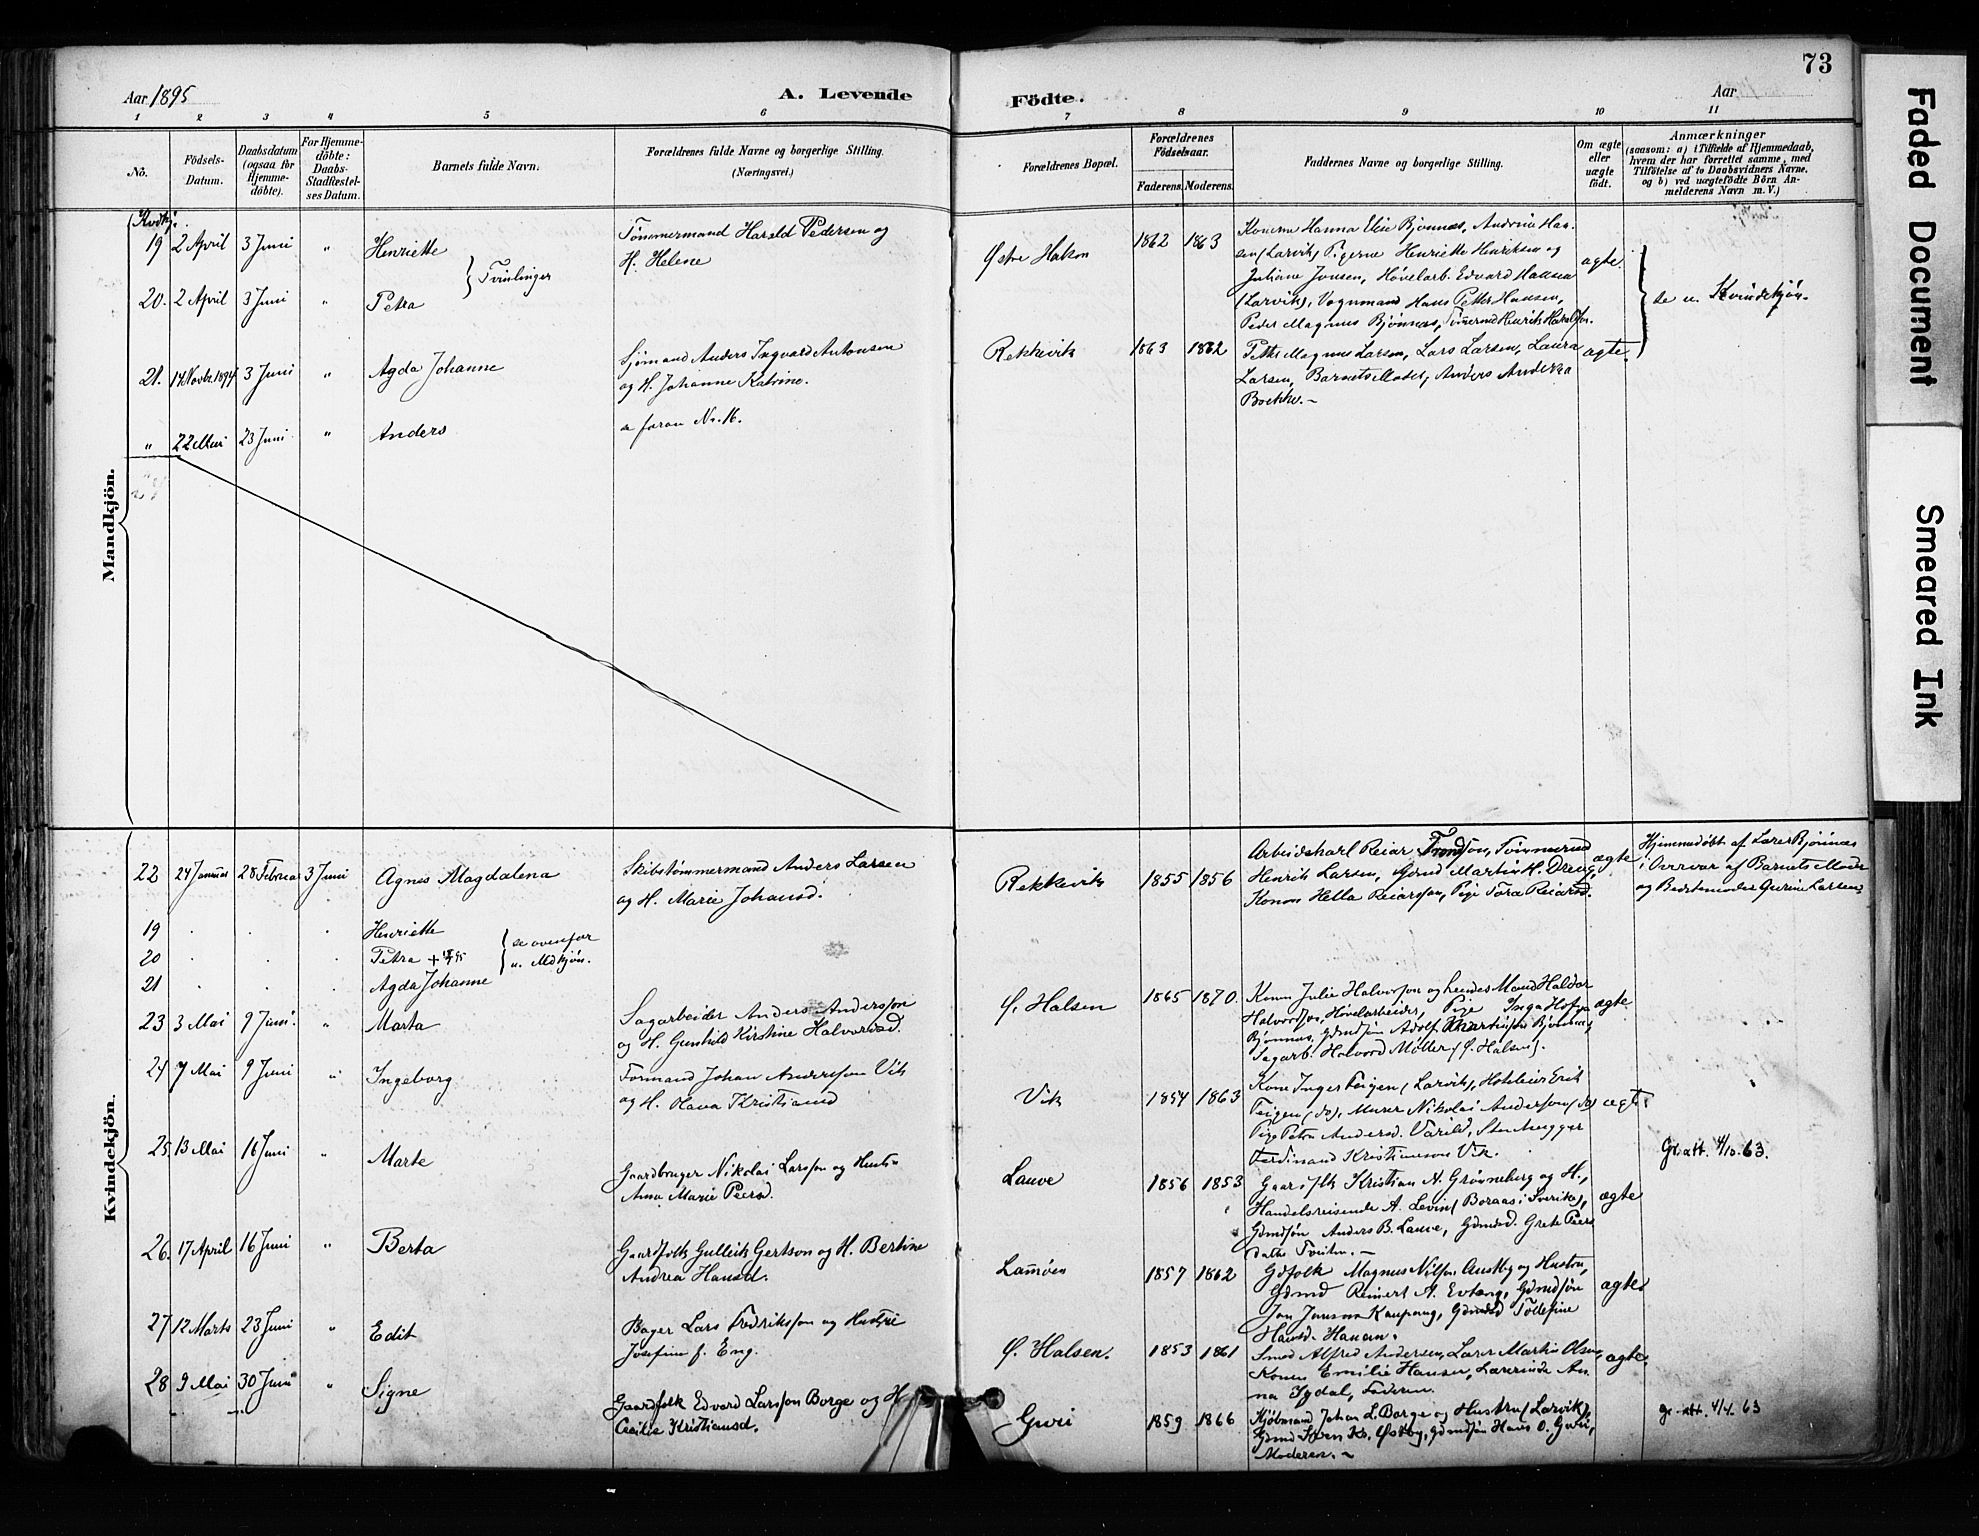 73
Aar 1895
A. Levende
Födte.
Aar
1 2 3 4 5 6 7 8 9 10 11
No.
Födsels-
Datum.
Daabsdatum
(ogsaa for
Hjemme-
döbte).
For Hjemme-
döbte:
Daabs-
Stadfæstel-
ses Datum.
Barnets fulde Navn.
Forældrenes fulde Navne og borgerlige Stilling.
(Næringsvei.)
Forældrenes Bopæl.
Forældrenes
Födselsaar.
Faderens. Moderens.
Faddernes Navne og borgerlige Stilling.
Om ægte
eller
uægte
født.
Anmærkninger
(saasom: a) i Tilfælde af Hjemmedaab,
hvem der har forrettet samme, med
Tilföielse af to Daabsvidners Navne,
og b) ved uægtefödte Börn An-
melderens Navn m. V.)
Mandkjön.
(Kvdkj.
19 2 April 3 Juni " Henriette
} Tvillinger
Tømmermand Harald Pedersen og
H. Helene
Østre Halsen 1862 1863
Konerne Hanna Elise Bjønnes, Andrine Han-
sen (Larvik) Pigerne Henriette Henriksen og
Juliane Jonsen, Høvelarb. Edvard Hansen
(Larvik), Vognmand Hans Petter Hansen,
Peder Magnus Bjønnes, Tømmermd Henrik Haraldsen.
ægte.
} se u. Kvindekjön.
20. 2 April 3 Juni " Petra
21. 14 Novbr. 1894 3 Juni " Agda Johanne
Sjømand Anders Ingvard Antonsen
og H. Johanne Katrine.
Rekkevik 1863 1862
Petter Magnus Larsen, Lars Larsen, Laura
Larsen, Barnets Moder, Anders Andersen
ægte.
" 22 Mai 23 Juni " Anders
se foran No. 16.
Kvindekjön.
22 24 Januar 28 Februar 3 Juni Agnes Magdalena
Skibstømmermand Anders Larsen
og H. Marie Johansd.
Rekkevik 1855 1856
Arbeidskarl Reiar Trondsson, Tømmermd
Henrik Larsen, Gbrmd Martin H.
Konen Hella Reiarsson, Pige Tora Reiarsd.
ægte
Hjemmedøbt af Lærer Bjønnes
i Overvær af Barnets Moder
og Bedstemoder Gurine Larsen
19 . . . Henriette
20 . . . Petra
21 . . . Agda Johanne
} se ovenfor
u. Mdkjön.
23 3 Mai 9 Juni. " Marta
Sagarbeider Anders Andersson
og H. Gunhild Kirstine Halvorsd.
Ø. Halsen 1865 1870.
Kone Julie Halvorsson og hendes Mand Haldor
Halvorsson, Høvelarbeider, Pige Inga
Bjønnes, Gbmdsøn Adolf Martinsen Bjønnes,
Sagarb. Halvord Møller (Ø. Halsen).
ægte
24 7 Mai 9 Juni " Ingeborg
Formand Johan Andersson Vik
og H. Olava Kristiansd
Vik 1854 1863
Kone Inger Teigen (Larvik), Hoteleier Erik
Teigen (do), Murer Nikolai Andersson (do)
Pige Petra Andersd. Varild, Stenhugger
Ferdinand Kristiansson Vik.
ægte
25 13 Mai 16 Juni " Marte
Gaardbruger Nikolai Larsson og Hustr.
Anna Marie Peersd.
Lauve 1856 1853
Gaardfolk Kristian N. Grønneberg og H.,
Handelsreisende A. Levin (Boraas i Sverike),
Gdmdsøn Anders B. Lauve, Gdmdsd. Grete Peers
datter Tveiten.
ægte
Gr. att. 4/10. 63.
26. 17 April 16 Juni " Berta
Gaardfolk Gulleik Gertson og H. Bertine
Andrea Hansd.
Lamøen 1857 1862
Gdfolk Magnus Nilsen Austby og Hustru,
Gdmd Reinert A. Evtang, Gdmdsøn
Jon Jonsson Kaupang, Gdmdsd
Hansd. Hanan.
ægte
27 12 Marts 23 Juni " Edit
Bager Lars Fredriksson og Hustru
Josefine f. Eng.
Ø. Halsen. 1853 1861
Smed Alfred Andersen, Lærer Martin Olsen,
Konen Emilie Hansen, Lærerinde An-
na Sydal, Faderen.
ægte.
28 9 Mai 30 Juni " Signe
Gaardfolk Edvard Larsson Borge og H.
Cecilie Kristiansd.
Gvri 1859 1866
Kjøbmand Johan L. Borge og Hustru (Larvik),
Gdmd Sven Kr. Østby, Gdmdsøn Hans O. Gvri,
Moderen.
gr. att. 4/4. 63
Faded Document
Smeared Ink